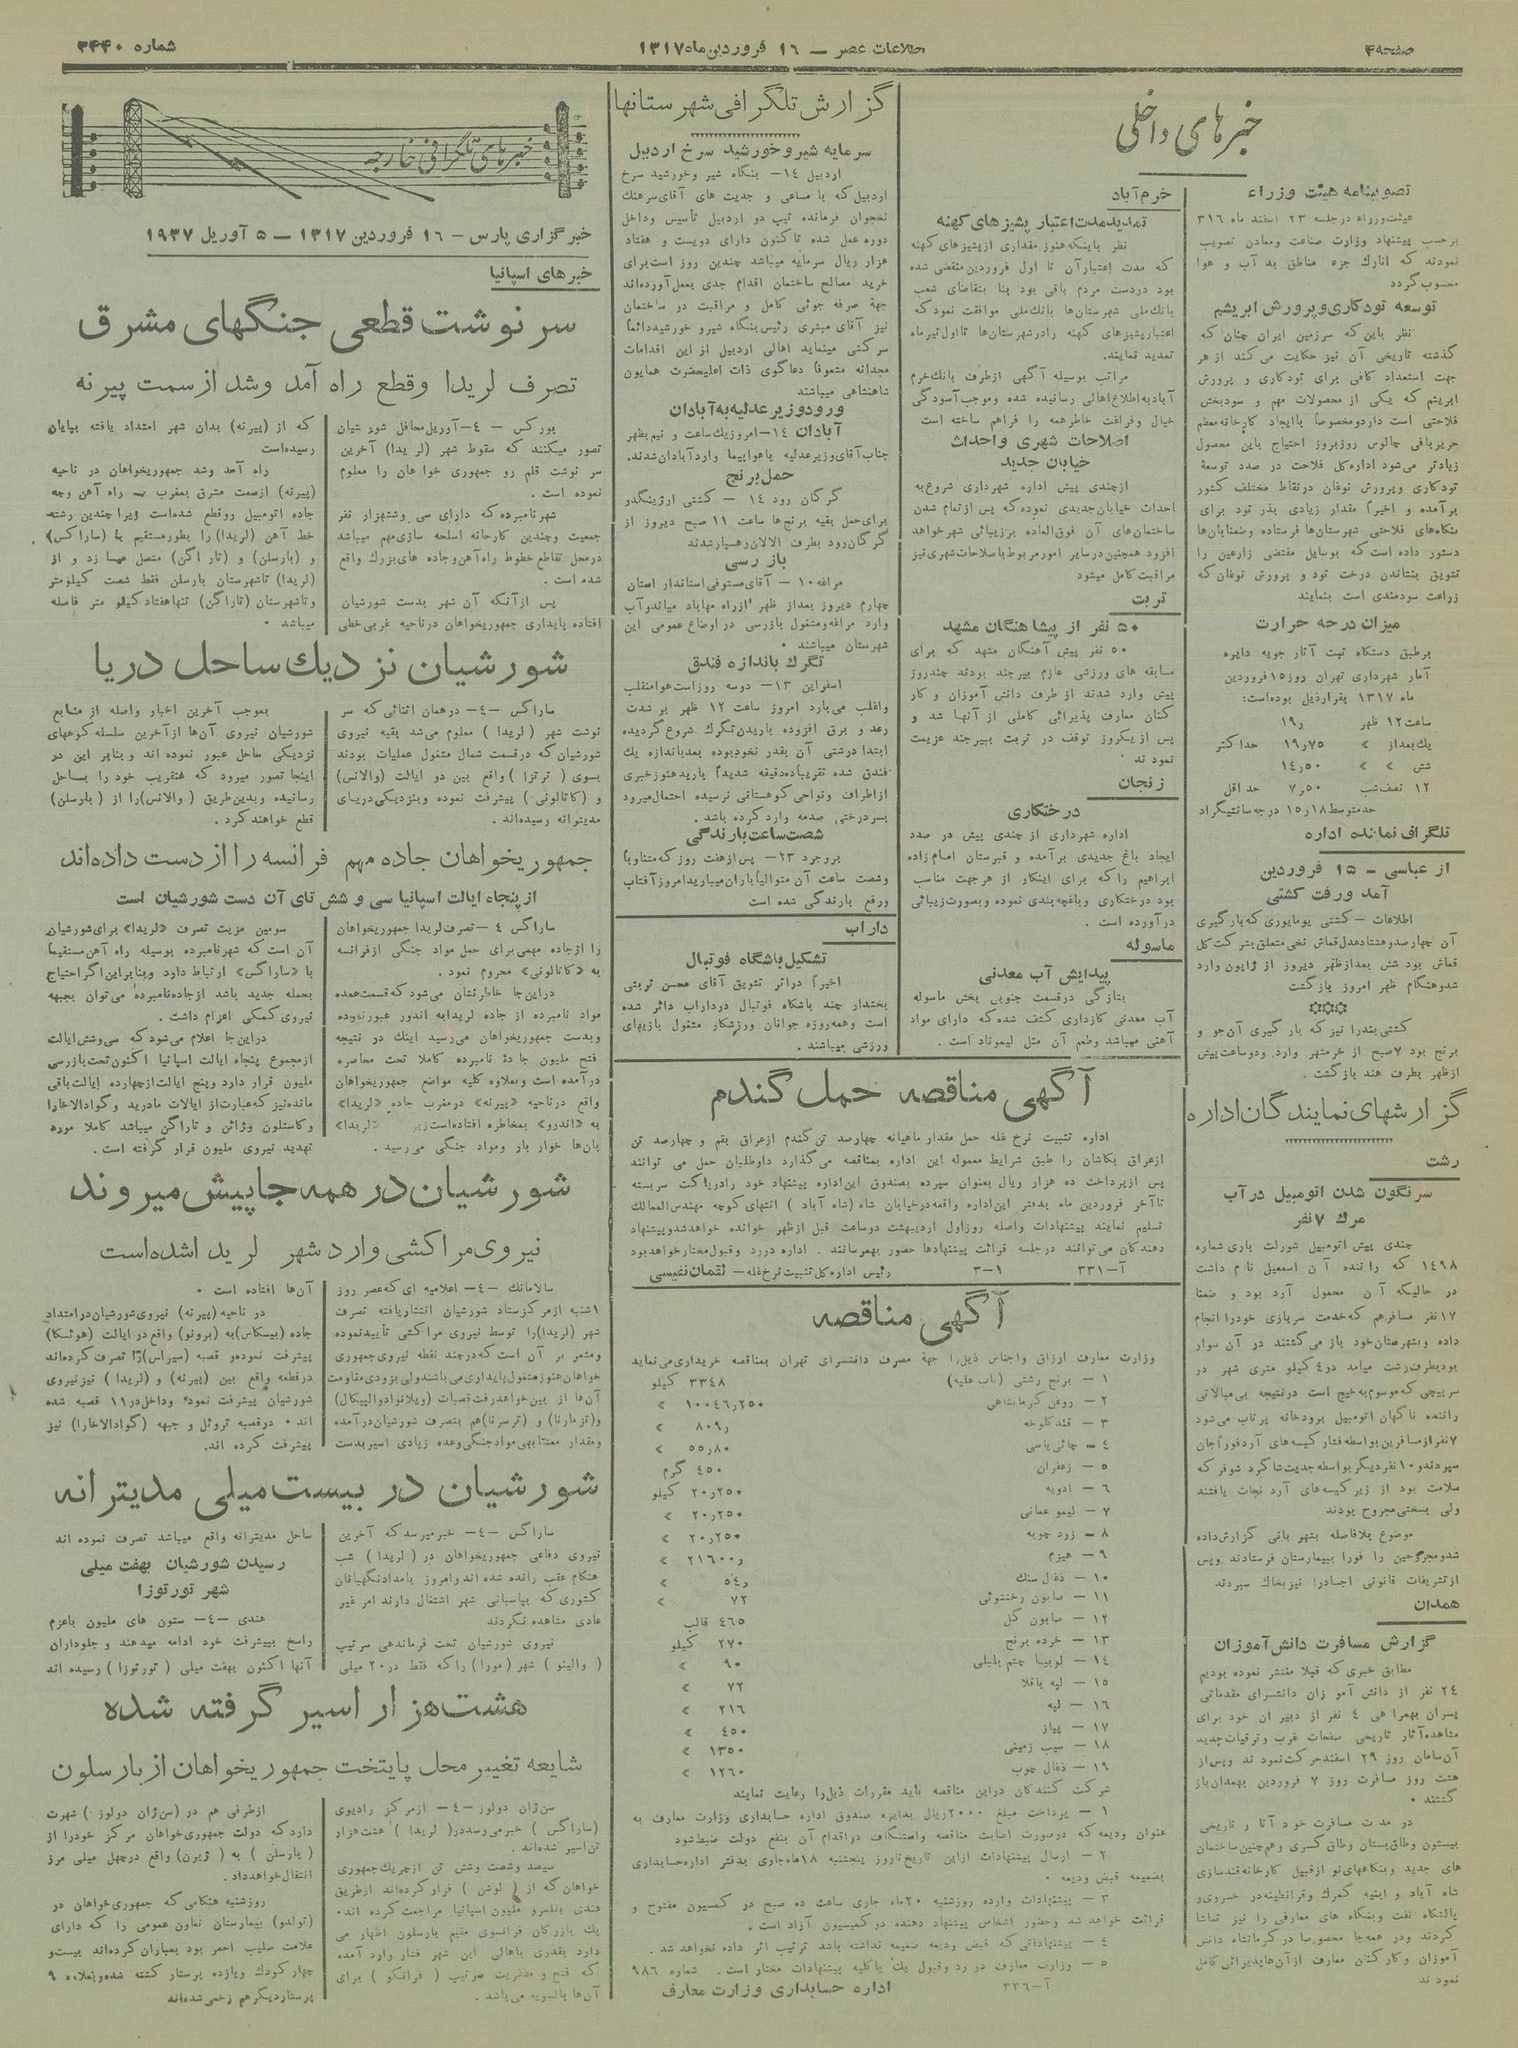 صفحه ۴
اطلاعات عصر – ۱۶ فروردین ماه ۱۳۱۷
شماره ۳۴۴۰
خبرهای داخلی
تصویبنامه هیئت وزراء
هیئت وزراء در جلسه ۲۳ اسفند ماه ۳۱۶
برحسب پیشنهاد وزارت صناعت ومعادن تصویب
نمودند که انارك جزء مناطق بد آب و هوا
محسوب گردد
توسعه نودکاری و پرورش ابریشم
نظر باین که سرزمین ایران چنان که
گذشته تاریخی آن نیز حکایت می کند از هر
جهت استعداد کافی برای نودکاری و پرورش
ابریشم که یکی از محصولات مهم و سودبخش
فلاحتی است دارد و مخصوصاً با ایجاد کارخانه معظم
حریربافی چالوس روزبروز احتیاج باین محصول
زیادتر می شود اداره کل فلاحت در صدد توسعه
نودکاری وپرورش نوغان در نقاط مختلف کشور
برآمده و اخیراً مقدار زیادی بذر تود برای
بنگاه های فلاحتی شهرستان ها فرستاده و ضمناً بآن ها
دستور داده است که بوسایل مقتضی زارعین را
تشویق بنشاندن درخت تود و پرورش نوغان که
زراعت سودمندی است بنمایند
میزان درجه حرارت
برطبق دستگاه ثبت آثار جویه دایره
آمار شهرداری تهران روز ۱۵ فروردین
ماه ۱۳۱۷ بقرار ذیل بوده است:
ساعت ۱۲ ظهر ۱۹٫
یك بعداز » ۱۹٫۷۵ حداکثر
شش » » ۱۴٫۵۰
۱۲ نصف شب ۷٫۵۰ حداقل
حد متوسط ۱۵٫۱۸ درجه سانتیگراد
تلگراف نماینده اداره
از عباسی – ۱۵ فروردین
آمد ورفت کشتی
اطلاعات – کشتی یومایوری که بارگیری
آن چهارصد و هشتاد عدل قماش نخی متعلق بشرکت کل
قماش بود شش بعدازظهر دیروز از ژاپون وارد
شد و هنگام ظهر امروز بازگشت
کشتی بندرا نیز که بار گیری آن جو و
برنج بود ۷ صبح از خرمشهر وارد ودو ساعت پیش
ازظهر بطرف هند بازگشت.
گزارشهای نمایندگان اداره
رشت
سرنگون شدن اتومبیل در آب
مرك ۷ نفر
چندی پیش اتومبیل شورلت باری شماره
۱۴۹۸ که راننده آن اسمعیل نام داشت
در حالیکه آن محمول آرد بود و ضمناً
۱۷ نفر مسافر هم که خدمت سربازی خود را انجام
داده و بشهرستان خود باز می گشتند در آن سوار
بود بطرف رشت میامد در ۴ کیلو متری شهر در
سرپیچی که موسوم به خیج است در نتیجه بی مبالاتی
راننده ناگهان اتومبیل برودخانه پرتاب می شود
۷ نفر از مسافرین بواسطه فشار کیسه های آرد فوراً جان
سپردند و ۱۰ نفر دیگر بواسطه جدیت شاگرد شوفر که
سلامت بود از زیر کیسه های آرد نجات یافتند
ولی بسختی مجروح بودند
موضوع بلافاصله بشهر بانی گزارش داده
شد و مجروحین را فوراً ببیمارستان فرستادند وپس
از تشریفات قانونی اجساد را نیز بخاك سپردند
همدان
گزارش مسافرت دانش آموزان
مطابق خبری که قبلا منتشر نموده بودیم
۲۴ نفر از دانش آموزان دانشسرای مقدماتی
پسران بهمراهی ۴ نفر از دبیران خود برای
مشاهده آثار تاریخی صفحات غرب و ترقیات جدید
آن سامان روز ۲۹ اسفند حرکت نمودند وپس از
هشت روز مسافرت روز ۷ فروردین بهمدان باز
گشتند.
در مدت مسافرت خود آثار و تاریخی
بیستون وطاق بستان وطاق کسری و همچنین ساختمان
های جدید و بنگاههای نو از قبیل کارخانه قند سازی
شاه آباد و ابنیه گمرك و قرانطینه در خسروی و
پالشگاه نفت و بنگاه های معارفی را نیز تماشا
کردند ودر همه جا مخصوصاً در کرمانشاه دانش
آموزان و کارکنان معارف از آن ها پذیرائی کامل
نمودند
خرم آباد
تمدید مدت اعتبار پشیزهای کهنه
نظر باینکه هنوز مقداری از پشیزهای کهنه
که مدت اعتبار آن تا اول فروردین منقضی شده
بود در دست مردم باقی بود بنا بتقاضای شعب
بانك ملی شهرستان ها بانك ملی موافقت نمود که
اعتبار پشیزهای کهنه را در شهرستان ها تا اول تیر ماه
تمدید نمایند.
مراتب بوسیله آگهی از طرف بانك خرم
آباد به اطلاع اهالی رسانیده شده و موجب آسودگی
خیال و فراغت خاطر همه را فراهم ساخته است
اصلاحات شهری و احداث
خیابان جدید
از چندی پیش اداره شهرداری شروع به
احداث خیابان جدیدی نموده که پس از تمام شدن
ساختمان های آن فوق العاده بر زیبائی شهر خواهد
افزود همچنین در سایر امور مربوط باصلاحات شهری نیز
مراقبت کامل میشود
تربت
۵۰ نفر از پیشاهنگان مشهد
۵۰ نفر پیش آهنگان مشهد که برای
مسابقه های ورزشی عازم بیرجند بودند چند روز
پیش وارد شدند از طرف دانش آموزان و کار
کنان معارف پذیرائی کاملی از آنها شد و
پس از یکروز توقف در تربت ببیرجند عزیمت
نمودند.
زنجان
درختکاری
اداره شهرداری از چندی پیش در صدد
ایجاد باغ جدیدی برآمده و قبرستان امام زاده
ابراهیم را که برای اینکار از هر جهت مناسب
بود درختکاری و باغچه بندی نموده و بصورت زیبائی
در آورده است.
ماسوله
پیدایش آب معدنی
بتازگی در قسمت جنوبی بخش ماسوله
آب معدنی گازداری کشف شده که دارای مواد
آهنی میباشد وطعم آن مثل لیموناد است.
گزارش تلگرافی شهرستانها
سرمایه شیر و خورشید سرخ اردبیل
اردبیل ۱۴ – بنگاه شیر وخورشید سرخ
اردبیل که با مساعی و جدیت های آقای سرهنگ
نخجوان فرمانده تیپ دو اردبیل تأسیس وداخل
دوره عمل شده تا کنون دارای دویست و هفتاد
هزار ریال سرمایه میباشد چندین روز است برای
خرید مصالح ساختمان اقدام جدی بعمل آورده اند
جهة صرفه جوئی کامل و مراقبت در ساختمان
نیز آقای مبشری رئیس بنگاه شیر و خورشید دائماً
سرکشی مینماید اهالی اردبیل از این اقدامات
مجدانه متعوفاً دعاگوی ذات اعلیحضرت همایون
شاهنشاهی میباشند
ورود وزیر عدلیه به آبادان
آبادان ۱۴ – امروز یك ساعت و نیم بظهر
جناب آقای وزیر عدلیه با هواپیما وارد آبادان شدند.
حمل برنج
گرگان رود ۱۴ – کشتی ارژینگدر
برای حمل بقیه برنج ها ساعت ۱۱ صبح دیروز از
گرگان رود بطرف الالان رهسپار شدند
بازرسی
مراغه ۱۰ – آقای مستوفی استاندار استان
چهارم دیروز بعداز ظهر از راه مهاباد میاندوآب
وارد مراغه و مشغول بازرسی در اوضاع عمومی این
شهرستان میباشند.
تگرك باندازه فندق
اسفراین ۱۳ – دوسه روز است هوا منقلب
واغلب می بارد امروز ساعت ۱۲ ظهر بر شدت
رعد و برق افزوده باریدن تگرك شروع گردیده
ابتدا درشتی آن بقدر نخود بوده بعد باندازه یك
فندق شده تقریباً ده دقیقه شدیداً بارید هنوز خبری
از اطراف ونواحی کوهستانی نرسیده احتمال میرود
بسردرختی صدمه وارد کرده باشد.
شصت ساعت بارندگی
بروجرد ۲۳ – پس از هفت روز که متناوباً
وشصت ساعت آن متوالیاً باران میبارید امروز آفتاب
ورفع بارندگی شده است
داراب
تشکیل باشگاه فوتبال
اخیراً در اثر تشویق آقای محسن تربتی
بخشدار چند باشگاه فوتبال در داراب دائر شده
است وهمه روزه جوانان ورزشکار مشغول بازیهای
ورزشی میباشند.
آگهی مناقصه حمل گندم
اداره تثبیت نرخ غله حمل مقدار ماهیانه چهارصد تن گندم از عراق بقم و چهارصد تن
از عراق بکاشان را طبق شرایط معموله این اداره بمناقصه می گذارد داوطلبان حمل می توانند
پس از پرداخت ده هزار ریال بعنوان سپرده بصندوق این اداره پیشنهاد خود را در پاکت سربسته
تا آخر فروردین ماه بدفتر این اداره واقعه در خیابان شاه (شاه آباد) انتهای کوچه مهندس الممالك
تسلیم نمایند پیشنهادات واصله روز اول اردیبهشت دو ساعت قبل از ظهر خوانده خواهد شد و پیشنهاد
دهندگان می توانند در جلسه قرائت پیشنهادها حضور بهمرسانند. اداره در رد و قبول مختار خواهد بود
آ–۳۳۱ ۱–۳ رئیس اداره کل تثبیت نرخ غله – لقمان نفیسی
آگهی مناقصه
وزارت معارف ارزاق واجناس ذیل را جهة مصرف دانشسرای تهران بمناقصه خریداری می نماید
۱ – برنج رشتی (باب علیه) ۳۳۴۸ کیلو
۲ – روغن کرمانشاهی ۱۰۰۴۶٫۲۵۰ »
۳ – قند کلوخه ۸۰۹٫ »
۴ – چائی یاسی ۵۵٫۸۰ »
۵ – زعفران ۴۵۰ گرم
۶ – ادویه ۲۰٫۲۵۰ کیلو
۷ – لیمو عمانی ۲۰٫۲۵۰ »
۸ – زرد چوبه ۲۰٫۲۵۰ »
۹ – هیزم ۲۱۶۰۰٫ »
۱۰ – ذغال سنك ۵۴٫ »
۱۱ – صابون رختشوئی ۷۲ »
۱۲ – صابون گل ۴۶۵ قالب
۱۳ – خرده برنج ۲۷۰ کیلو
۱۴ – لوبیا چشم بلبلی ۹۰ »
۱۵ – لپه باقلا ۷۲ »
۱۶ – لپه ۲۱۶ »
۱۷ – پیاز ۴۵۰ »
۱۸ – سیب زمینی ۱۳۵۰ »
۱۹ – ذغال چوب ۱۲۶۰ »
شرکت کنندگان در این مناقصه باید مقررات ذیل را رعایت نمایند
۱ – پرداخت مبلغ ۲۰۰۰ ریال بدایره صندوق اداره حسابداری وزارت معارف به
عنوان ودیعه که در صورت اصابت مناقصه واستنکاف در اقدام آن بنفع دولت ضبط شود
۲ – ارسال پیشنهادات از این تاریخ تا روز پنجشنبه ۱۸ ماه جاری بدفتر اداره حسابداری
بضمیمه قبض ودیعه.
۳ – پیشنهادات وارده روز شنبه ۲۰ ماه جاری ساعت ده صبح در کمسیون مفتوح و
قرائت خواهد شد وحضور اشخاص پیشنهاد دهنده در کمیسیون آزاد است.
۴ – پیشنهاداتی که قبض ودیعه ضمیمه نداشته باشد ترتیب اثر داده نخواهد شد.
۵ – وزارت معارف در رد وقبول یك یا کلیه پیشنهادات مختار است. شماره ۹۸۶
آ–۳۳۶ اداره حسابداری وزارت معارف
خبرهای تلگرافی خارجه
خبرگزاری پارس – ۱۶ فروردین ۱۳۱۷ – ۵ آوریل ۱۹۳۷
خبرهای اسپانیا
سرنوشت قطعی جنگهای مشرق
تصرف لریدا وقطع راه آمد وشد از سمت پیرنه
بورکس – ۴ – آوریل محافل شورشیان
تصور میکنند که سقوط شهر (لریدا) آخرین
سر نوشت قلم رو جمهوری خواهان را معلوم
نموده است.
شهر نامبرده که دارای سی وشش هزار نفر
جمعیت وچندین کارخانه اسلحه سازی مهم میباشد
در محل تقاطع خطوط راه آهن وجاده های بزرك واقع
شده است.
پس از آنکه آن شهر بدست شورشیان
افتاده پایداری جمهوریخواهان در ناحیه غربی خطی
که از (پیرنه) بدان شهر امتداد یافته بپایان
رسیده است
راه آمد وشد جمهوریخواهان در ناحیه
(پیرنه) از سمت مشرق بمغرب به راه آهن وچه
جاده اتومبیل رو قطع شده است زیرا چندین رشته
خط آهن (لریدا) را بطور مستقیم با (ساراگس)
و (بارسلن) و (تاراگن) متصل میسازد و از
(لریدا) تا شهرستان بارسلن فقط شصت کیلومتر
وتا شهرستان (تاراگن) تنها هفتاد کیلو متر فاصله
میباشد.
شورشیان نزدیك ساحل دریا
ساراگس – ۴ – در همان اثنائی که سر
نوشت شهر (لریدا) معلوم می شد بقیه نیروی
شورشیان که در قسمت شمال مشغول عملیات بودند
بسوی (ترتزا) واقع بین دو ایالت (والانس)
و (کاتالونی) پیشرفت نموده وبنزدیکی دریای
مدیترانه رسیده اند.
بموجب آخرین اخبار واصله از منابع
شورشیان نیروی آن ها از آخرین سلسله کوههای
نزدیکی ساحل عبور نموده اند و بنابر این در
اینجا تصور میرود که عنقریب خود را بساحل
رسانیده و بدین طریق (والانس) را از (بارسلن)
قطع خواهند کرد.
جمهوریخواهان جاده مهم فرانسه را از دست داده اند
از پنجاه ایالت اسپانیا سی و شش تای آن دست شورشیان است
ساراگس ۴ – تصرف لریدا جمهوریخواهان
را از جاده مهمی برای حمل مواد جنگی از فرانسه
به «کاتالونی» محروم نمود.
در این جا خاطر نشان می شود که قسمت عمده
مواد نامبرده از جاده لریدا به اندور عبور نموده
وبدست جمهوریخواهان می رسید اینك در نتیجه
فتح ملیون جادهٔ نامبرده کاملا تحت محاصره
در آمده است و بعلاوه کلیه مواضع جمهوریخواهان
واقع در ناحیه «پیرنه» در مغرب جاده «لریدا»
به «اندرو» بمخاطره افتاده است زیرا «لریدا»
بآن ها خوار بار ومواد جنگی می رسید.
سومین مزیت تصرف «لریدا» برای شورشیان
آن است که شهر نامبرده بوسیله راه آهن مستقیماً
با «ساراگس» ارتباط دارد و بنا براین اگر احتیاج
بحمله جدید باشد از جاده نامبرده می توان بجبهه
نیروی کمکی اعزام داشت.
در این جا اعلام می شود که سی وشش ایالت
از مجموع پنجاه ایالت اسپانیا اکنون تحت بازرسی
ملیون قرار دارد وپنج ایالت از چهارده ایالت باقی
مانده نیز که عبارت از ایالات مادرید و گوادالاخارا
وکاستلون وژائن و تاراگن میباشد کاملا مورد
تهدید نیروی ملیون قرار گرفته است.
شورشیان در همه جا پیش میروند
نیروی مراکشی وارد شهر لریدا شده است
سالامانك – ۴ – اعلامیه ای که عصر روز
۱ شنبه از مرکز ستاد شورشیان انتشار یافته تصرف
شهر (لریدا) را توسط نیروی مراکشی تأیید نموده
ومشعر بر آن است که در چند نقطه نیروی جمهوری
خواهان هنوز مشغول پایداری می باشند ولی بزودی مقاومت
آن ها از بین خواهد رفت قصبات (ویلانوا دوالپیکال)
و (تزمارنا) و (ترسرنا) هم بتصرف شورشیان درآمده
ومقدار معتنابهی مواد جنگی وعده زیادی اسیر بدست
آن ها افتاده است.
در ناحیه (پیرنه) نیروی شورشیان در امتداد
جاده (بیسکاس) به (برونو) واقع در ایالت (هوئسکا)
پیشرفت نموده و قصبه (سیراس) را تصرف کرده اند
در قطعه واقع بین (پیرنه) و (لریدا) نیز نیروی
شورشیان پیشرفت نموده وداخل در ۱۱ قصبه شده
اند. در قصبه تروئل و جبهه (گوادالاخارا) نیز
پیشرفت کرده اند.
شورشیان در بیست میلی مدیترانه
ساراگس – ۴ – خبر میرسد که آخرین
نیروی دفاعی جمهوریخواهان در (لریدا) شب
هنگام عقب رانده شده اند وامروز بامداد نگهبانان
کشوری که بپاسبانی شهر اشتغال دارند امر غیر
عادی مشاهده نکردند
نیروی شورشیان تحت فرماندهی سرتیپ
(والینو) شهر (مورا) را که فقط در ۲۰ میلی
ساحل مدیترانه واقع میباشد تصرف نموده اند
رسیدن شورشیان بهفت میلی
شهر تورتوزا
هندی – ۴ – ستون های ملیون باعزم
راسخ بپیشرفت خود ادامه میدهند و جلوداران
آنها اکنون بهفت میلی (تورتوزا) رسیده اند
هشت هزار اسیر گرفته شده
شایعه تغییر محل پایتخت جمهوریخواهان از بارسلون
سن ژان دولوز – ۴ – از مرکز رادیوی
(ساراگس) خبر می رسد در (لریدا) هشت هزار
تن اسیر شده اند.
سیصد وشصت وشش تن از چریك جمهوری
خواهان که از (لوشن) فرار کرده اند از طریق
هندی بقلمرو ملیون اسپانیا مراجعت کرده اند.
یك بازرگان فرانسوی مقیم بارسلون اظهار می
دارد بقدری باهالی این شهر فشار وارد آمده
که فتح و مظفریت سرتیپ (فرانکو) برای
آن ها بالسویه می باشد.
از طرفی هم در (سن ژان دولوز) شهرت
دارد که دولت جمهوریخواهان مرکز خود را از
(بارسلن) به (ژیرن) واقع در چهل میلی مرز
انتقال خواهد داد.
روز شنبه هنگامی که جمهوری خواهان در
(تولدو) بیمارستان تعاون عمومی را که دارای
علامت صلیب احمر بود بمباران کرده اند بیست و
چهار کودك ویازده پرستار کشته شده و بعلاوه ۹
پرستار دیگر هم زخمی شده اند